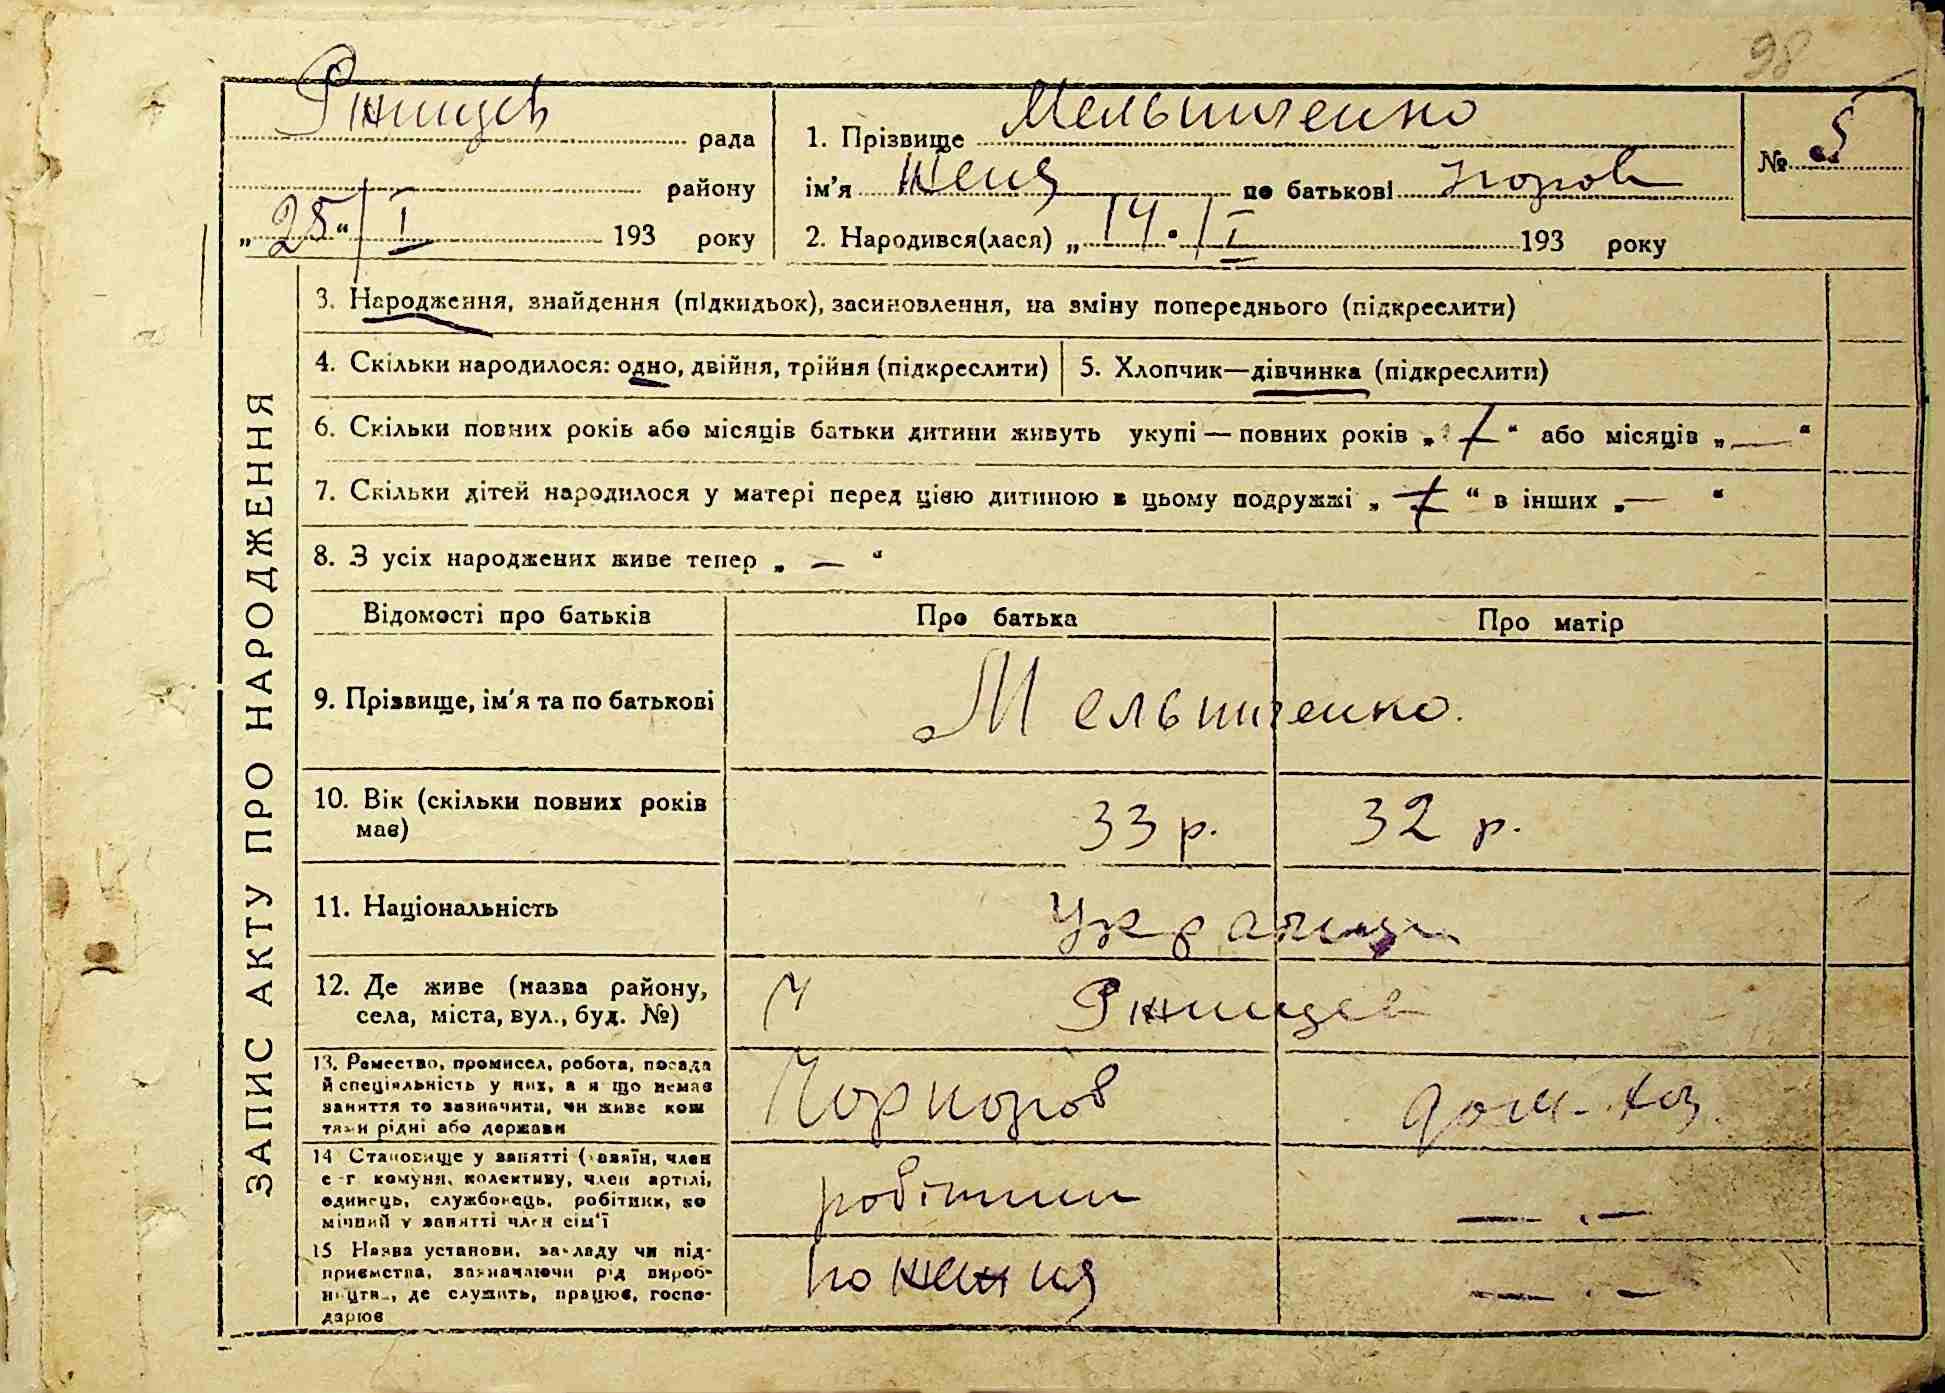 98
Ржищев рада
району
„25“ I 193 року
1. Прізвище Мельниченко
ім'я Женя по батькові
2. Народився(лася) „14." I 193 року
№ 5
ЗАПИС АКТУ ПРО НАРОДЖЕННЯ
3. Народження, знайдення (підкидьок), засиновлення, на зміну попереднього (підкреслити)
4. Скільки народилося: одно, двійня, трійня (підкреслити)
5. Хлопчик—дівчинка (підкреслити)
6. Скільки повних років або місяців батьки дитини живуть укупі — повних років „ “ або місяців „—“
7. Скільки дітей народилося у матері перед цією дитиною в цьому подружжі „ “ в інших „— “
8. З усіх народжених живе тепер „ — “
Відомості про батьків Про батька Про матір
9. Прізвище, ім'я та по батькові Мельниченко.
10. Вік (скільки повних років
має) 33 р. 32 р.
11. Національність
12. Де живе (назва району,
села, міста, вул., буд. №) Ржищев
13. Ремество, промисел, робота, посада
й спеціяльність у них, а якщо немає
заняття то зазначити, чи живе кош
тами рідні або держави дом-хоз.
14 Становище у занятті (хазяїн, член
с-г комуни, колективу, член артілі,
одинець, службовець, робітник, по
мічний у занятті член сім'ї робітник — . —
15 Назва установи, закладу чи під-
приємства, зазначаючи рід вироб-
ництв, де служить, працює, госпо-
дарює — . —